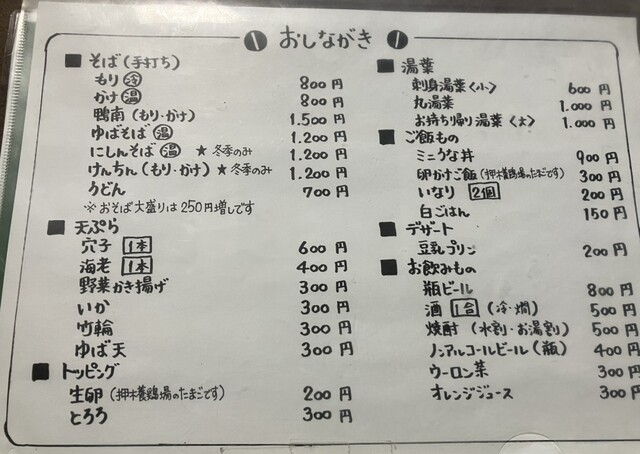 おしながき
■ そば (手打ち)
もり 冷 800円
かけ 温 800円
鴨南 (もり・かけ) 1.500円
ゆばそば 温 1.200円
にしんそば 温 ★冬季のみ 1.200円
けんちん (もり・かけ) ★冬季のみ 1.200円
うどん 700円
※おそば大盛りは250円増しです
■ 天ぷら
穴子 1本 600円
海老 1本 400円
野菜かき揚げ 300円
いか 300円
竹輪 300円
ゆば天 300円
■ トッピング
生卵 (押木養鶏場のたまごです) 200円
とろろ 300円
■ 湯葉
刺身湯葉〈小〉 600円
丸湯葉 1.000円
お持ち帰り湯葉〈大〉 1.000円
■ ご飯もの
ミニうな丼 900円
卵かけご飯 (押木養鶏場のたまごです) 300円
いなり 2個 200円
白ごはん 150円
■ デザート
豆乳プリン 200円
■ お飲みもの
瓶ビール 800円
酒 1合 (冷・燗) 500円
焼酎 (水割・お湯割) 500円
ノンアルコールビール (瓶) 400円
ウーロン茶 300円
オレンジジュース 300円